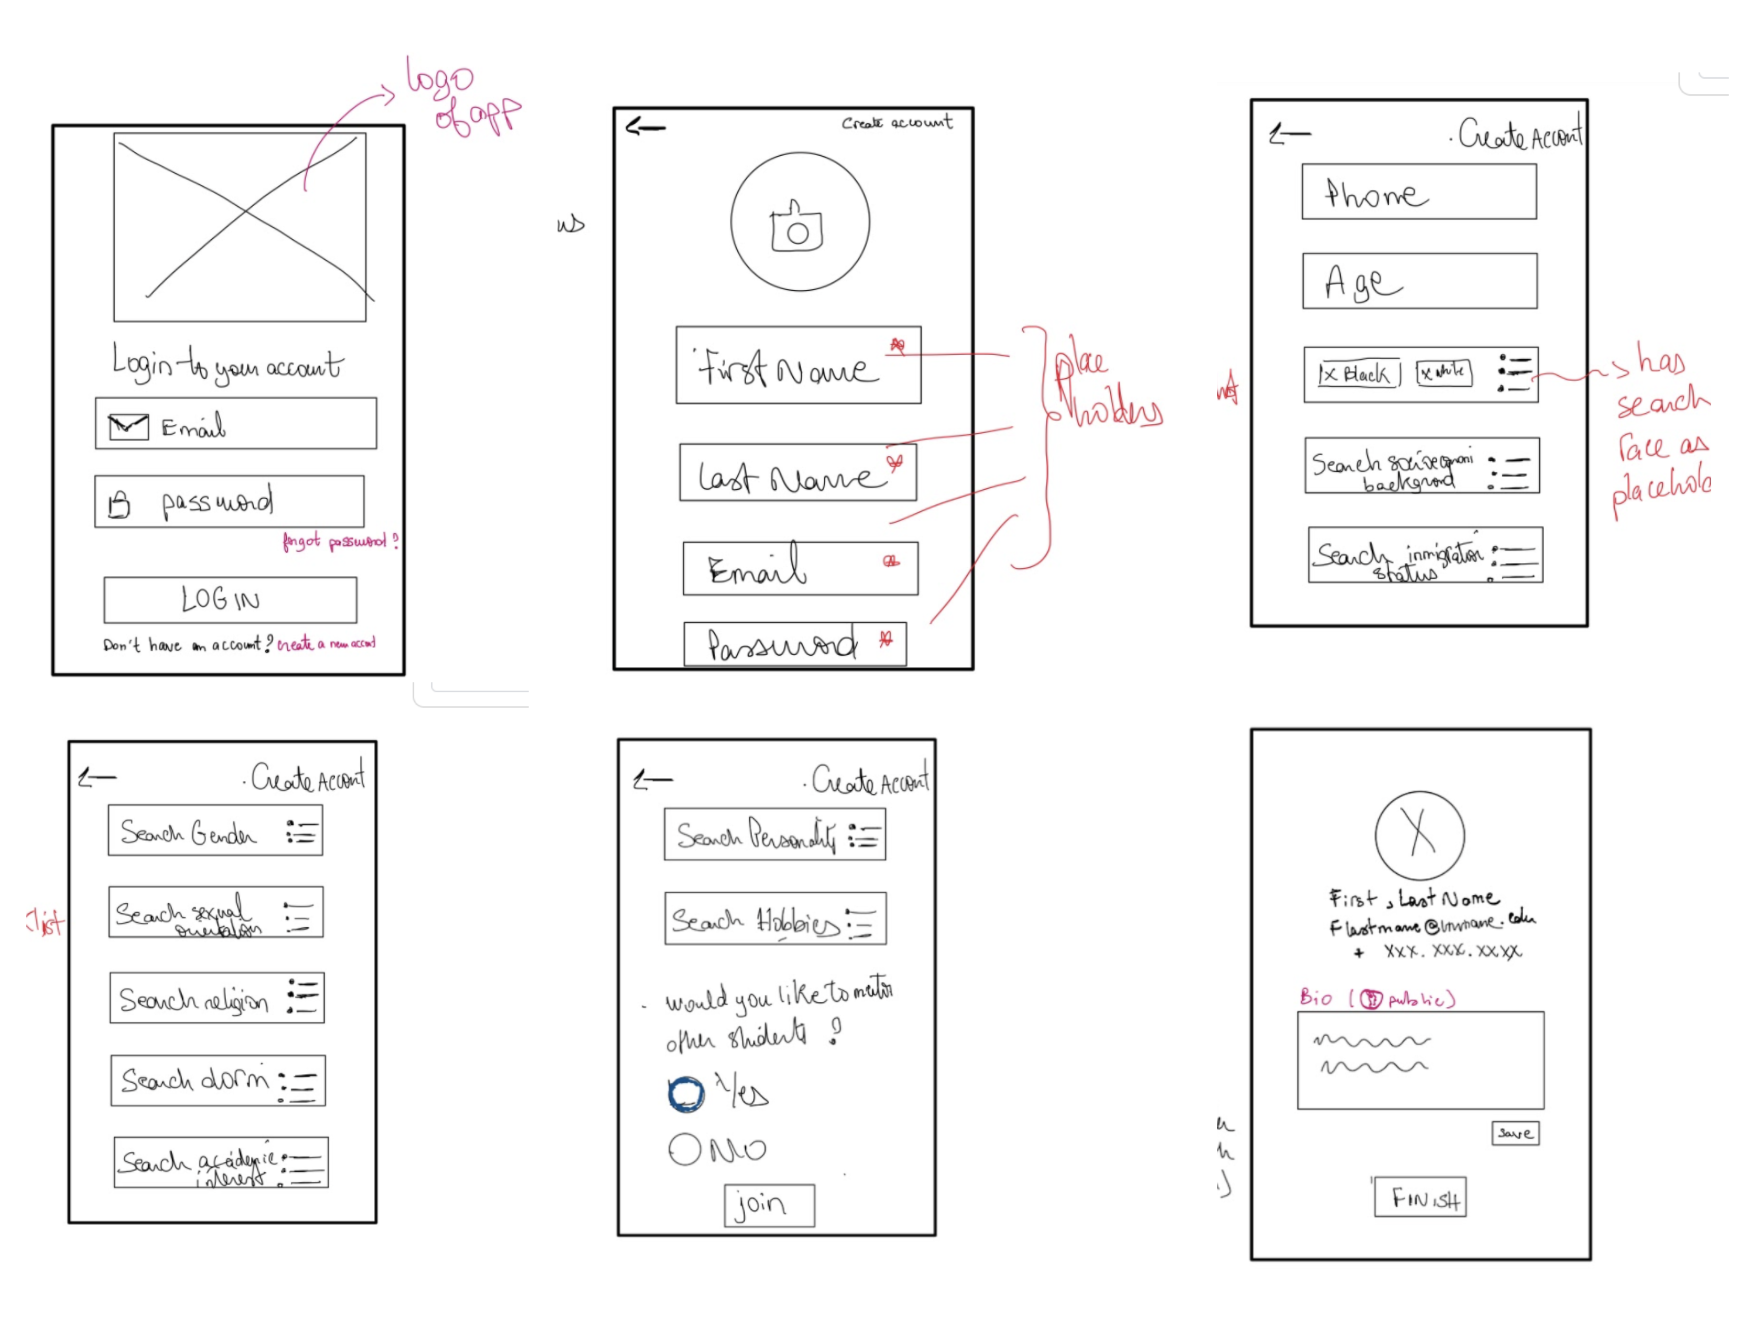 logo
of app
Login to your account
Email
password
forgot password?
LOGIN
Don't have an account? create a new accont
us
Create account
First Name *
Last Name *
Email *
Password *
place
holders
Create Accont
Phone
Age
x Black x white
Search
backgrond
Search inmigration
status
has
search
race as
placehol
Create Accont
Search Gender
Search sexual
orientation
Search religion
Search dorm
Search academic
interest
list
Create Accont
Search Personality
Search Hobbies
would you like to mentor
other students?
Yes
NO
join
First, Last Name
+ xxx. xxx. xxxx
Bio ( public)
save
FINISH